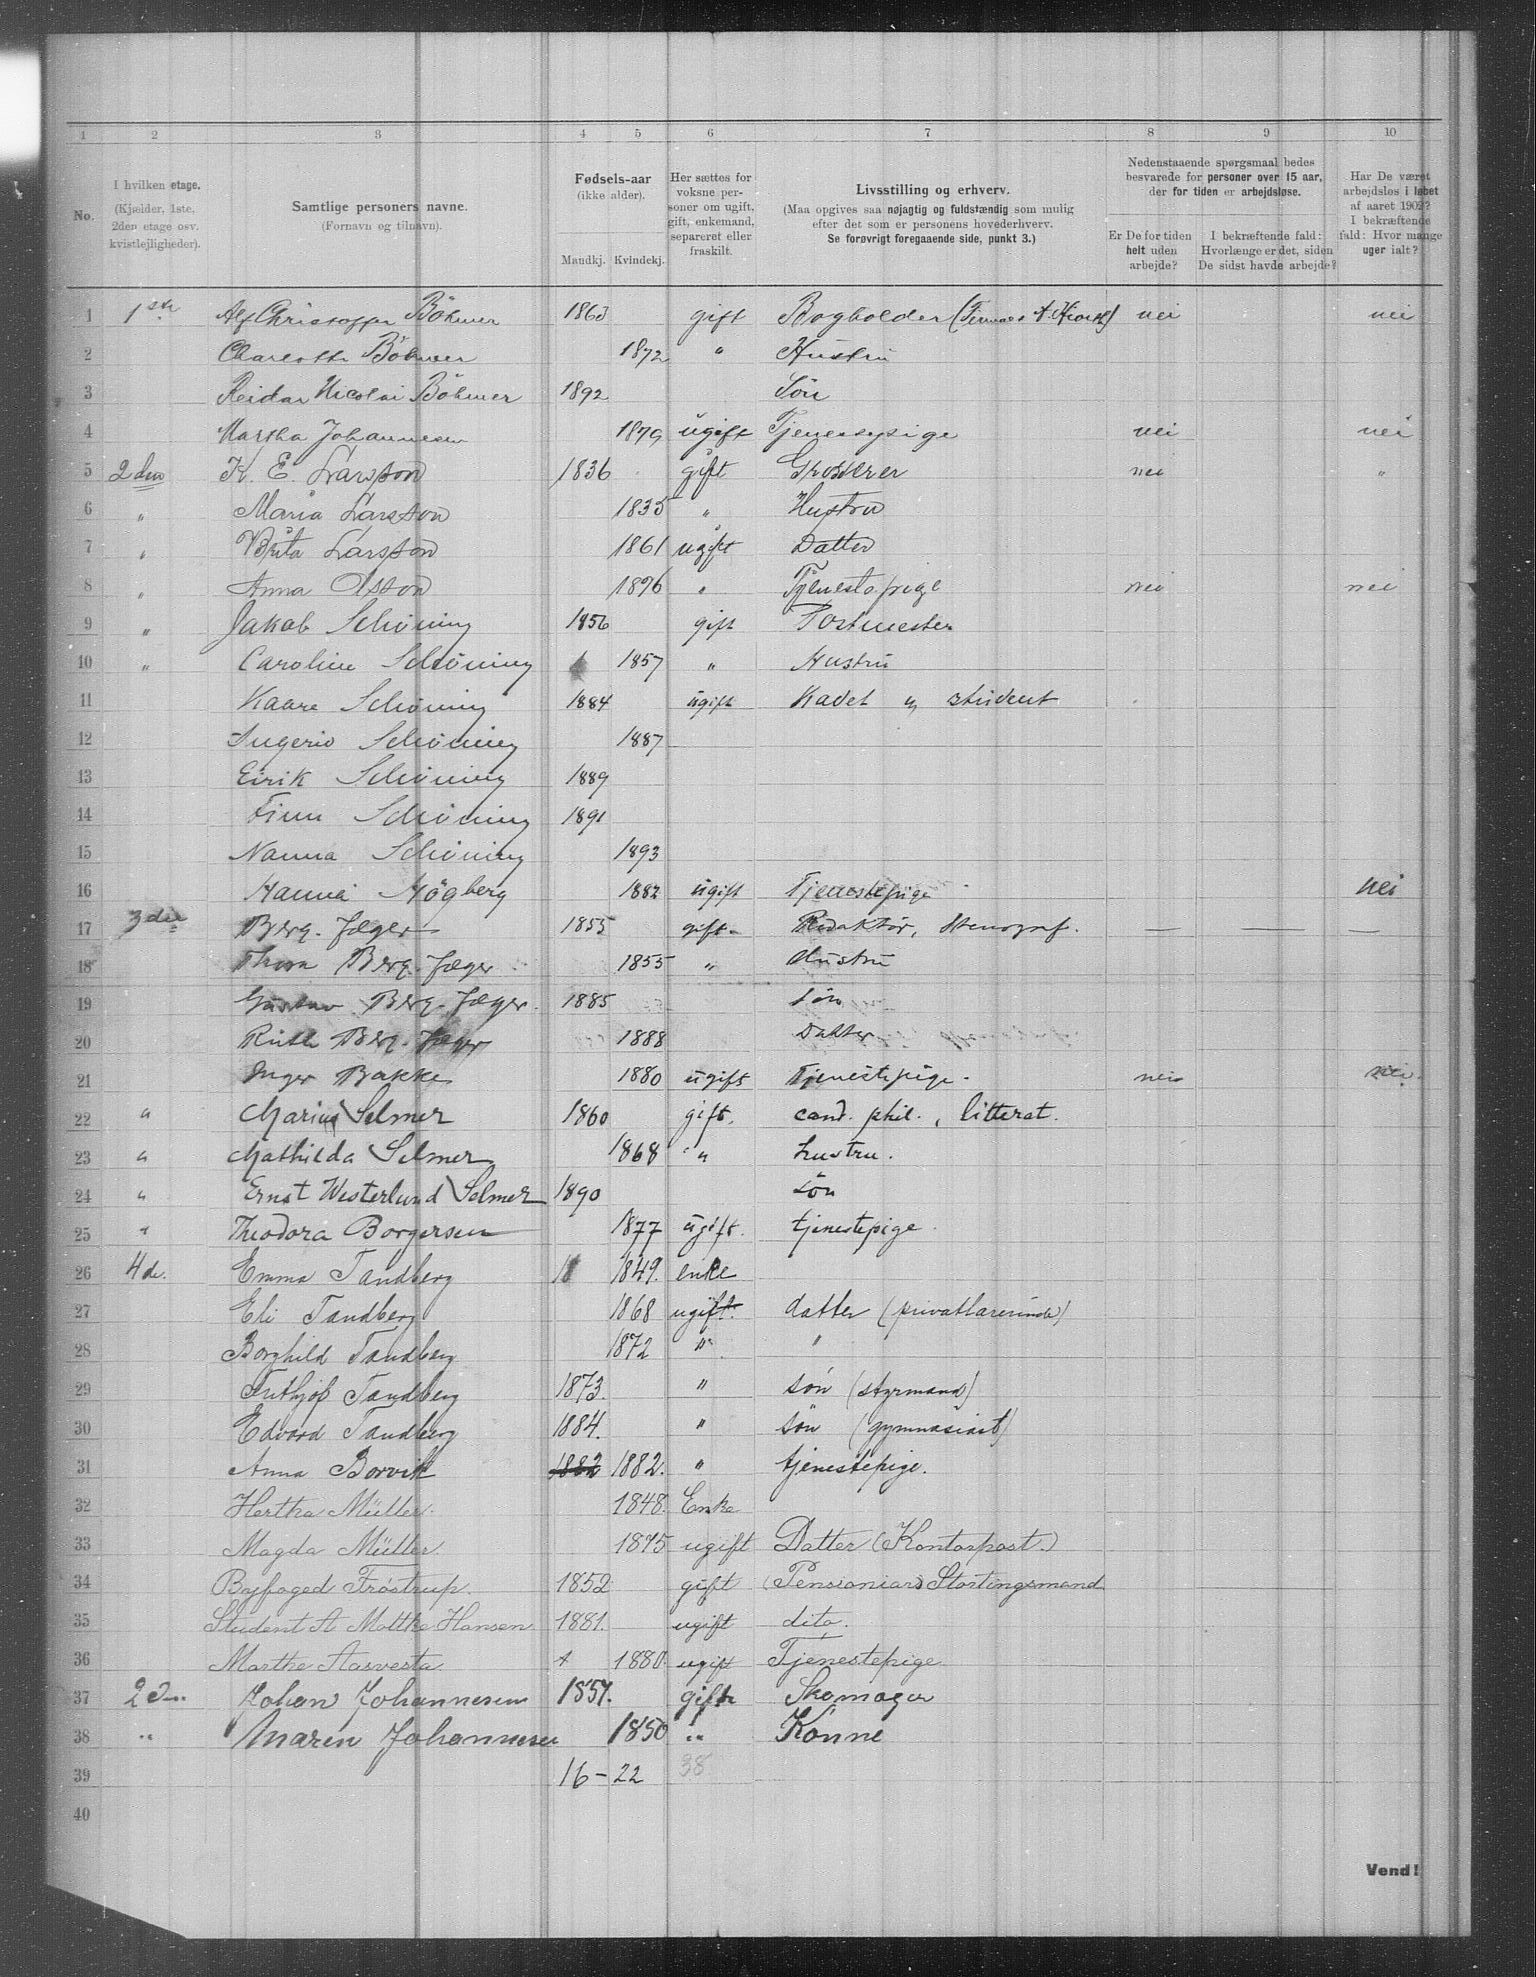 1 2 3 4 5 6 7 8 9 10
No.
I hvilken etage.
(Kjælder, 1ste,
2den etage osv.
kvistlejligheder).
Samtlige personers navne.
(Fornavn og tilnavn).
Fødsels-aar
(ikke alder).
Mandkj. Kvindekj.
Her sættes for
voksne per-
soner om ugift,
gift, enkemand,
separeret eller
fraskilt.
Livsstilling og erhverv.
(Maa opgives saa nøjagtig og fuldstændig som mulig
efter det som er personens hovederhverv.
Se forøvrigt foregaaende side, punkt 3.)
Nedenstaaende spørgsmaal bedes
besvarede for personer over 15 aar,
der for tiden er arbejdsløse.
Er De for tiden
helt uden
arbejde?
I bekræftende fald:
Hvorlænge er det, siden
De sidst havde arbejde?
Har De været
arbejdsløs i løbet
af aaret 1902?
I bekræftende
fald: Hvor mange
uger ialt?
1 1ste Alf Christoffer Böhmer 1863 gift Bogholder (Firmaet A. Hiorth) nei nei
2 Charlotte Böhmer 1872 " Hustru
3 Reidar Nicolai Böhmer 1892 Sön
4 Martha Johannesen 1879 ugift Tjenestepige nei nei
5 2den K. E. Larsson 1836 gift Grosserer nei "
6 " Maria Larsson 1835 " Hustru
7 " Brita Larsson 1861 ugift Datter
8 " Anna Olsson 1876 " Tjenestepige nei nei
9 " Jakob Schöning 1856 gift Postmester
10 " Caroline Schöning 1857 " Hustru
11 Kaare Schöning 1884 ugift Kadet og student
12 Ingerid Schöning 1887
13 Eirik Schöning 1889
14 Finn Schöning 1891
15 Nanna Schöning 1893
16 Hanna Högberg 1882 ugift Tjenestepige nei
17 3die Berg-Jæger 1855 gift Redaktør, stenograf. — — —
18 Thora Berg-Jæger 1855 " Hustru
19 Gustav Berg-Jæger. 1885 Søn
20 Ruth Berg-Jæger 1888 Datter
21 Inger Bakke 1880 ugift Tjenestepige. nei nei.
22 " Marius Selmer 1860 gift. cand. phil., litterat.
23 " Mathilda Selmer 1868 " hustru.
24 " Ernst Westerlund Selmer 1890 søn
25 " Theodora Borgersen 1877 ugift. tjenestepige.
26 4de. Emma Tandberg 1849. enke
27 Eli Tandberg 1868 ugift. datter (privatlærerinde)
28 Borghild Tandberg 1872 " "
29 Frithjof Tandberg 1873. " søn (styrmand)
30 Edvard Tandberg 1884. " søn (gymnasiast)
31 Anna Borvik 1882 1882. " tjenestepige.
32 Hertha Müller. 1848. Enke
33 Magda Müller. 1875 ugift Datter (Kontorpost.)
34 Byfoged Fröstrup 1852 gift (Pensionær) Stortingsmand
35 Student A Moltke Hansen 1881. ugift dito.
36 Marthe Aasvesta 1880. ugift Tjenestepige
37 2den Johan Johannesen 1857. gift Skomager
38 " Maren Johannesen 1850 " Konne
39 16 - 22 38
40
Vend!